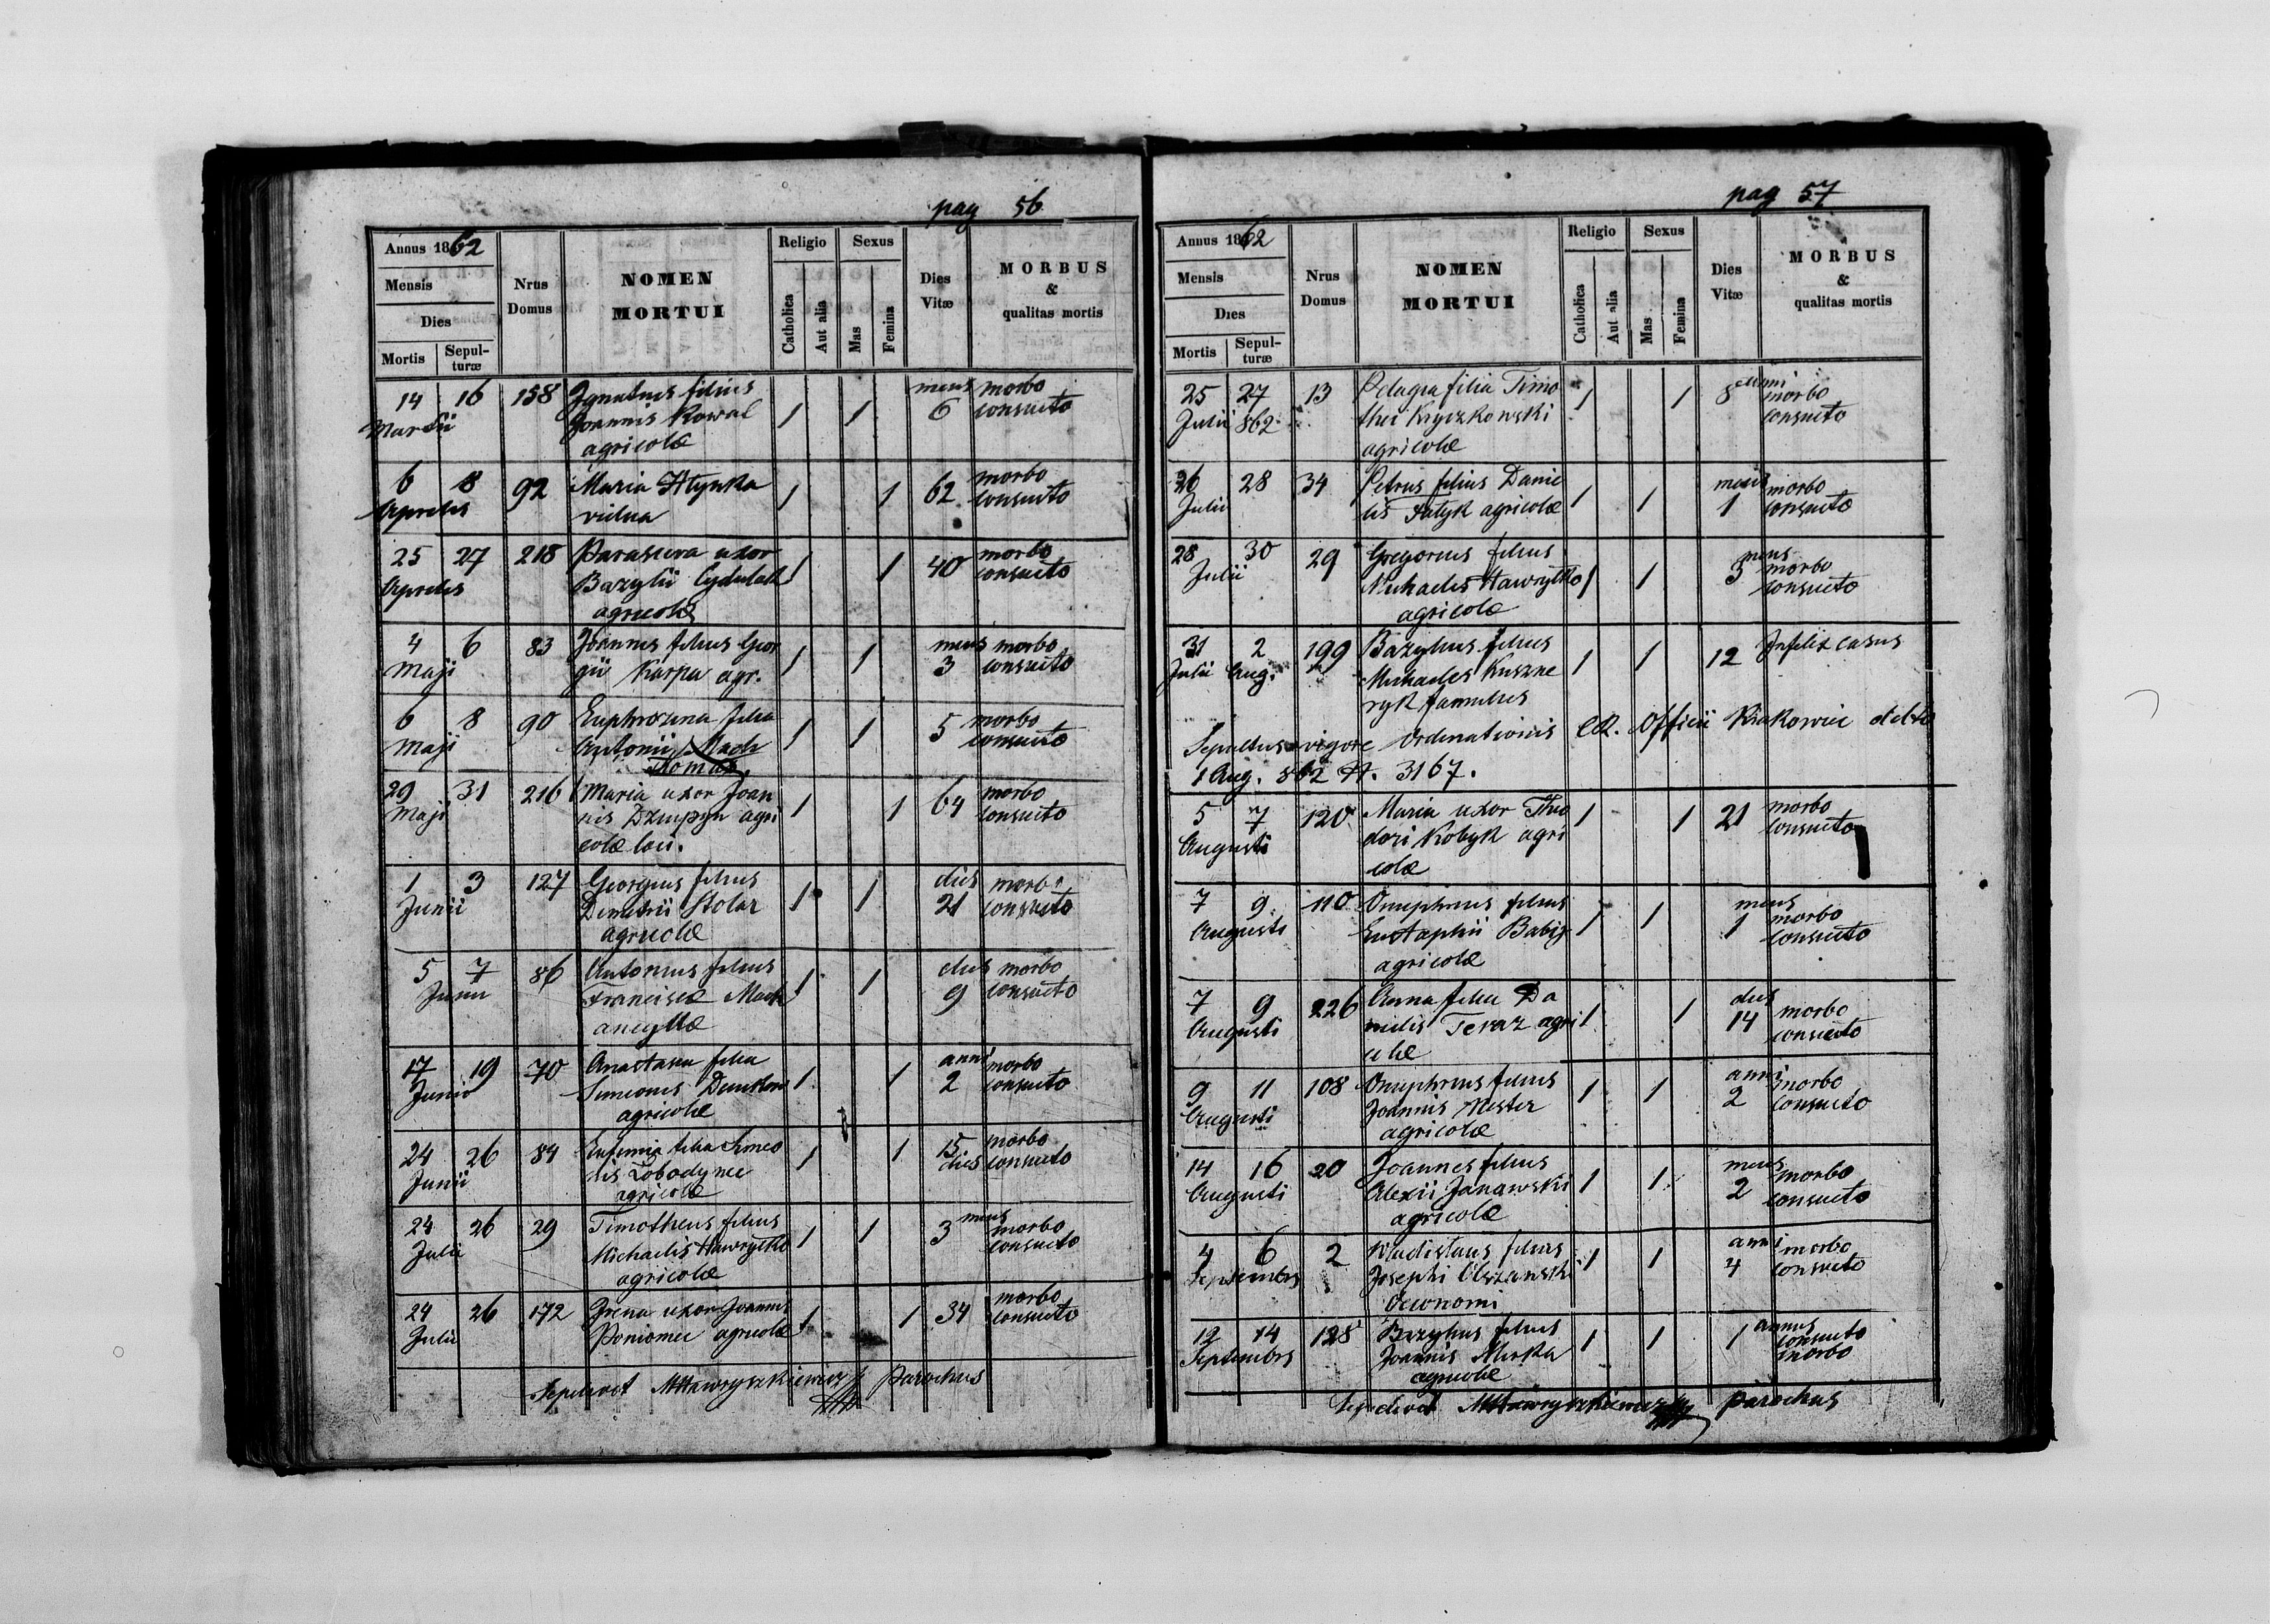 pag 56
Annus 1862
Mensis
Dies
Mortis
Sepul-
turæ
Nrus
Domus
NOMEN
MORTUI
Religio
Catholica
Aut alia
Sexus
Mas
Femina
Dies
Vitæ
MORBUS
&
qualitas mortis
14 16 158 Ignatius filius mens morbo
Martii Joannis Kowal 1 1 6 consueto
agricolæ
6 8 92 Maria Hlynka 1 1 62 morbo
Aprilis vidua consueto
25 27 218 Parasceva uxor 1 1 40 morbo
Aprilis Bazylii consueto
agricolæ
4 6 83 Joannes filius Geor mens morbo
Maji gii Karpa agr. 1 1 3 consueto
6 8 90 Euphrozina filia 1 1 5 morbo
Maji Antonii Mach consueto
29 31 216 Maria uxor Joan 1 1 64 morbo
Maji nis Dzupyn agri consueto
colæ loci.
1 3 127 Georgius filius dies morbo
Junii Demetrii Stolar 1 1 21 consueto
agricolæ
5 7 86 Antonius filius dies morbo
Junii Franciscæ Mach 1 1 9 consueto
ancyllæ
17 19 70 Anastasia filia anni morbo
Junii Simeonis 1 1 2 consueto
agricolæ
24 26 84 Eufemia filia Simeo 1 1 15 morbo
Junii nis Łobodynec dies consueto
agricolæ
24 26 29 Timotheus filius 1 1 3 mens morbo
Julii Michaelis Hawryłko consueto
agricolæ
24 26 172 Irena uxor Joannis 1 1 34 morbo
Julii Poniomec agricolæ consueto
Sepelivit MHawryszkiewicz Parochus
pag 57
Annus 1862
Mensis
Dies
Mortis
Sepul-
turæ
Nrus
Domus
NOMEN
MORTUI
Religio
Catholica
Aut alia
Sexus
Mas
Femina
Dies
Vitæ
MORBUS
&
qualitas mortis
25 27 13 Pelagia filia Timo 1 1 8 anni morbo
Julii 862 thei Kryczkowski consueto
agricolæ
26 28 34 Petrus filius Danie 1 1 mens morbo
Julii lis Fatyk agricolæ 1 consueto
28 30 29 Gregorius filius 1 1 3 mens morbo
Julii Michaelis Hawryłko consueto
agricolæ
31 2 199 Bazylius filius 1 1 12 Infelix casus
Julii Aug. Michaelis Kuszne
ryk famulus
Sepultus vigore Ordinationis CR. Officii Krakowiec ddto
1 Aug. 862 N. 3167.
5 7 120 Maria uxor Theo 1 1 21 morbo
Augusti dori Kobyk agri consueto
colæ
7 9 110 Onuphrius filius mens
Augusti Eustaphii Babij 1 1 1 morbo
agricolæ consueto
7 9 226 Anna filia Da 1 1 dies
Augusti nielis Teraz agri 14 morbo
colæ consueto
9 11 108 Onuphrius filius 1 1 anni morbo
Augusti Joannis Nester 2 consueto
agricolæ
14 16 20 Joannes filius mens morbo
Augusti Alexii Janawski 1 1 2 consueto
agricolæ
4 6 2 Wladislaus filius 1 1 anni morbo
Septembris Josephi Olszanski 4 consueto
Oeconomi
12 14 128 Bazylius filius 1 1 1 annus
Septembris Joannis Mirka consueto
agricolæ morbo
Sepelivit MHawryszkiewicz parochus